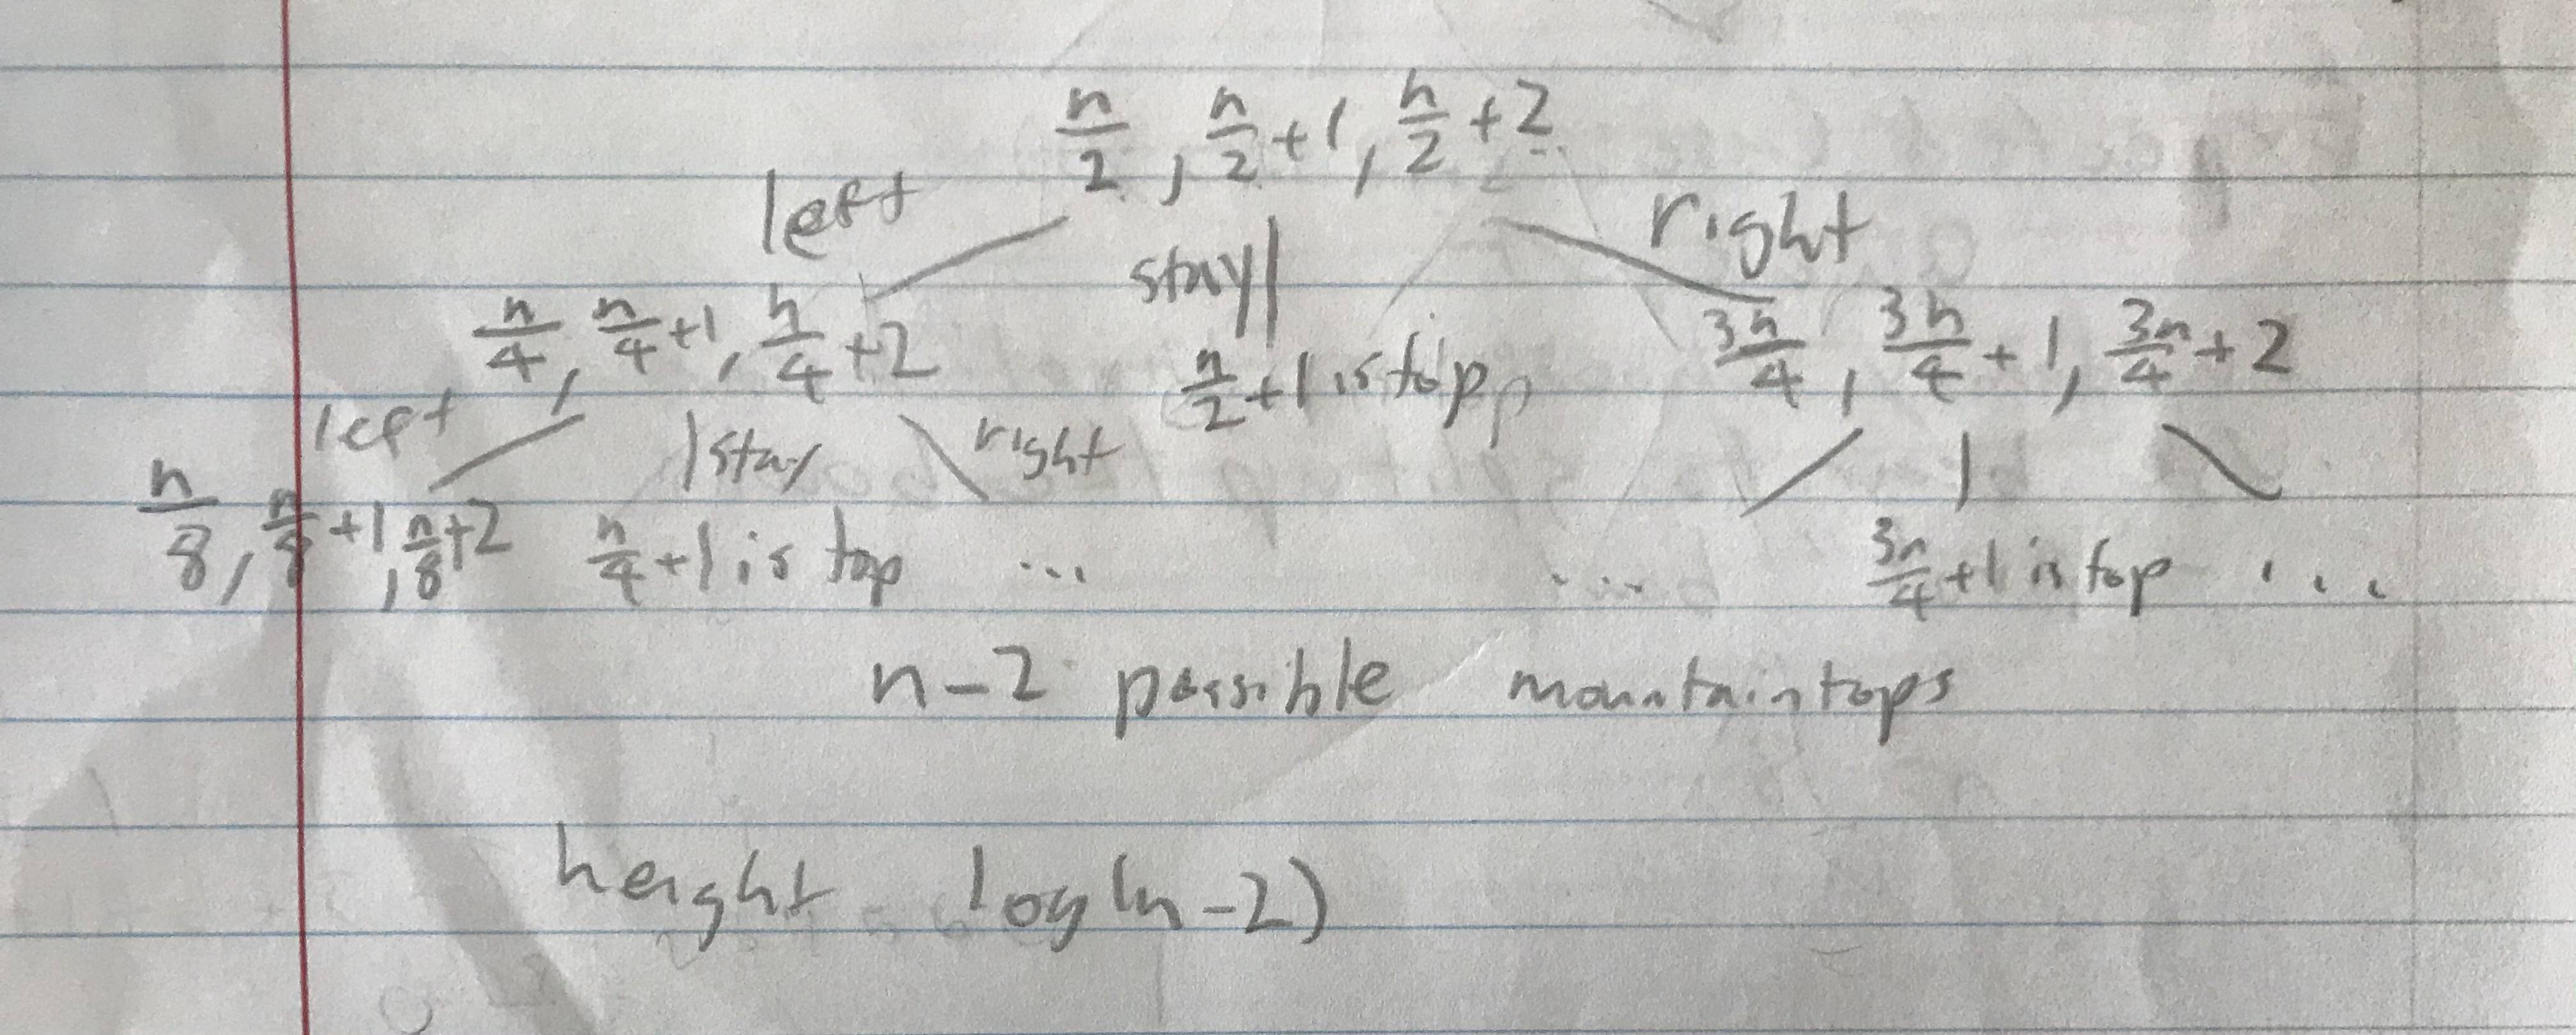 n/2, n/2+1, n/2+2
left stay right
n/4, n/4+1, n/4+2 n/2+1 is top 3n/4, 3n/4+1, 3n/4+2
left stay right
n/8, n/8+1, n/8+2 n/4+1 is top ... ... 3n/4+1 is top ...
n-2 possible mountaintops
height log(n-2)